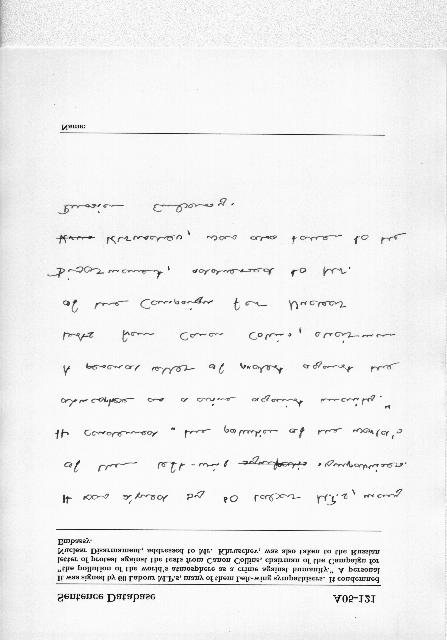 Sentence Database A05-121
It was signed by 60 Labour M.P.s, many of them Left-wing sympathisers. It condemned
"the pollution of the world's atmosphere as a crime against humanity." A personal
letter of protest against the tests from Canon Collins, chairman of the Campaign for
Nuclear Disarmament, addressed to Mr. Khruschev, was also taken to the Russian
Embassy.
It was signed by 60 Labour M.P.s, many
of them left-wing sympathisers.
It condemned "the pollution of the world's
atmosphere as a crime against humanity."
A personal letter of protest against the
tests from Canon Collins, chairman
of the Campaign for Nuclear
Disarmament, addressed to Mr.
Khruschev, was also taken to the
Russian Embassy.
Name: